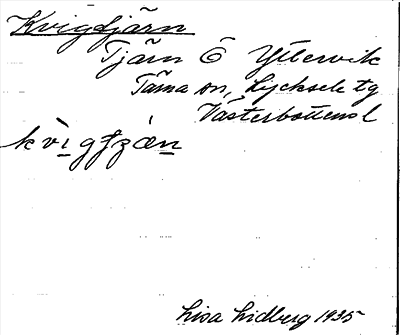 Kvigtjärn
Tjärn Ö Yttervik
Tärna sn, Lycksele tg
Västerbottensl
kvìgtʃzæ̀n
Lisa Lidberg 1935